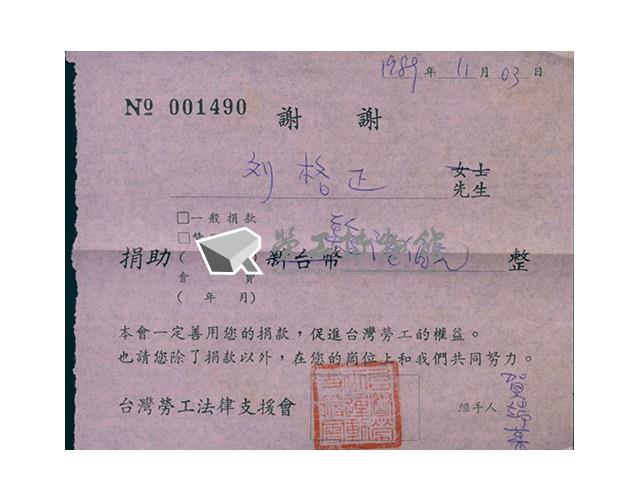 1989年11月03日
No 001490
謝 謝
刘格正 女士
先生
□一般捐款
□
捐助 ( ) 新台幣 整
會 員
( 年 月)
本會一定善用您的捐款，促進台灣勞工的權益。
也請您除了捐款以外，在您的崗位上和我們共同努力。
台灣勞工法律支援會 經手人
勞工博物館